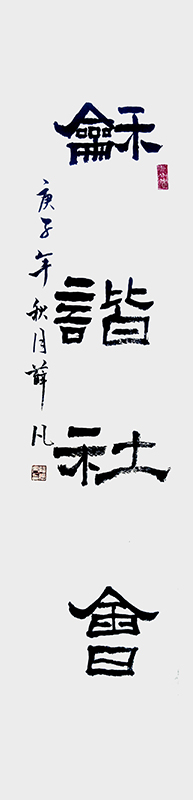 龢諧社會
庚子年秋月薛凡